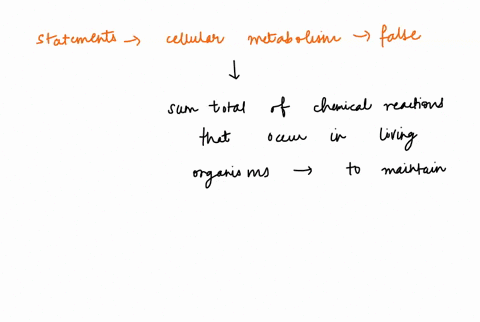 statements → cellular metabolism → false
↓
sum total of chemical reactions
that occur in living
organisms → to maintain